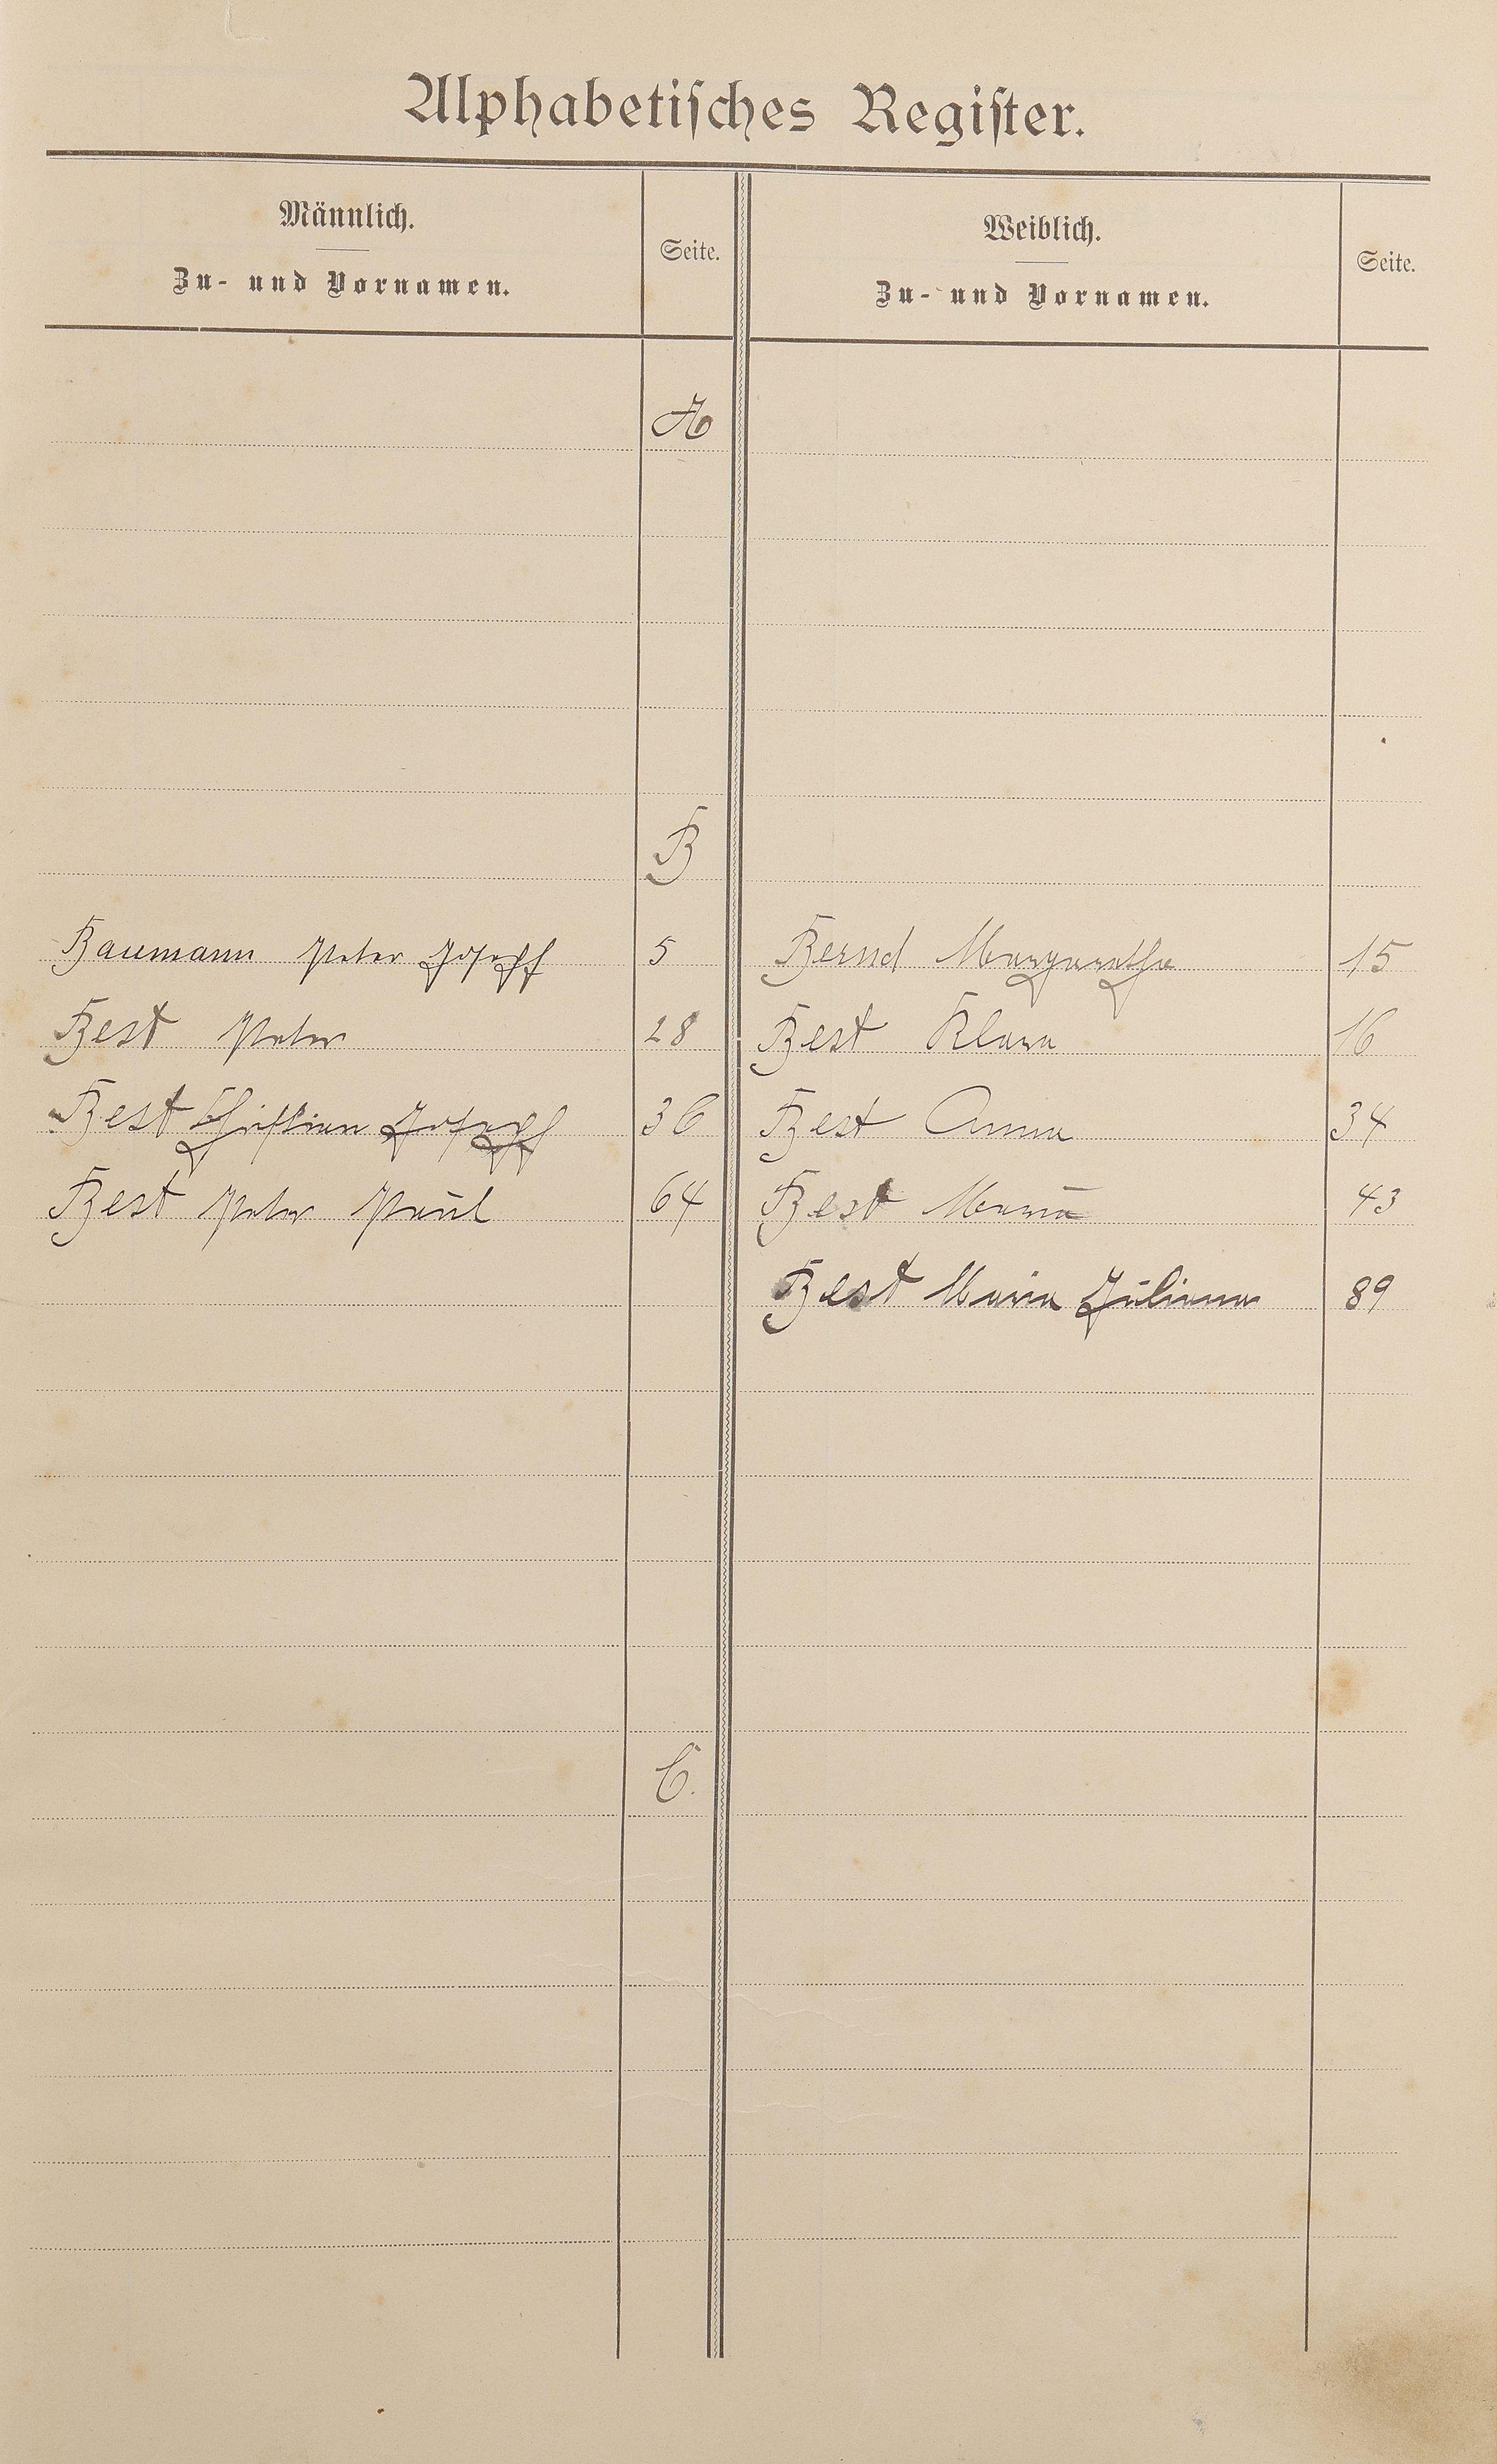 Alphabetisches Register.
Männlich. Seite. Weiblich. Seite.
Zu- und Vornamen. Zu- und Vornamen.
A
B
Baumann Peter Joseph 5 Bernd Margarethe 15
Best Peter 28 Best Klara 16
Best Christian Joseph 36 Best Anna 34
Best Peter Paul 64 Best Maria 43
Best Maria Juliana 89
C.